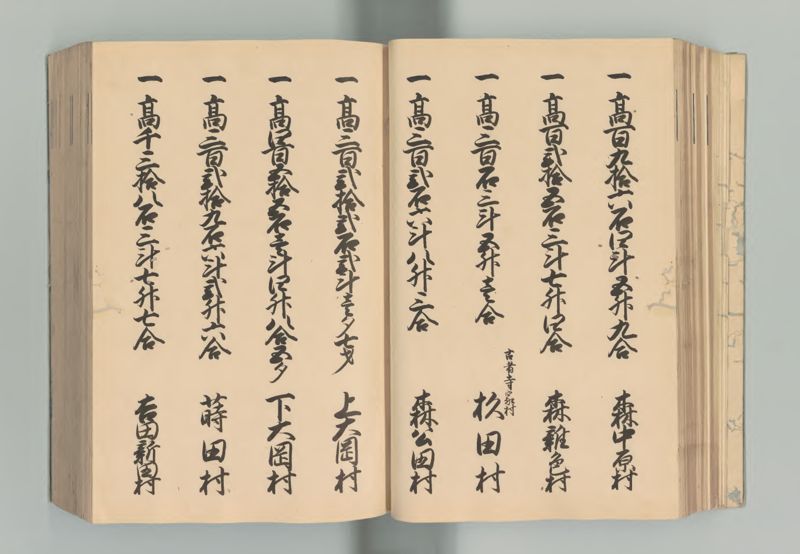 一高百九拾六石四斗五升九合　森中原村
一高百弐拾五石三斗七升四合　森雑色村
一高三百石三斗五升壱合　杉田村
古者寺家村
一高三百弐石六斗八升三合　森公田村
一高三百弐拾弐石弐斗壱夕七才　上大岡村
一高四百五拾五石壱斗四升八合五夕　下大岡村
一高三百弐拾九石六斗弐升六合　蒔田村
一高千三拾八石三斗七升七合　吉田新田村